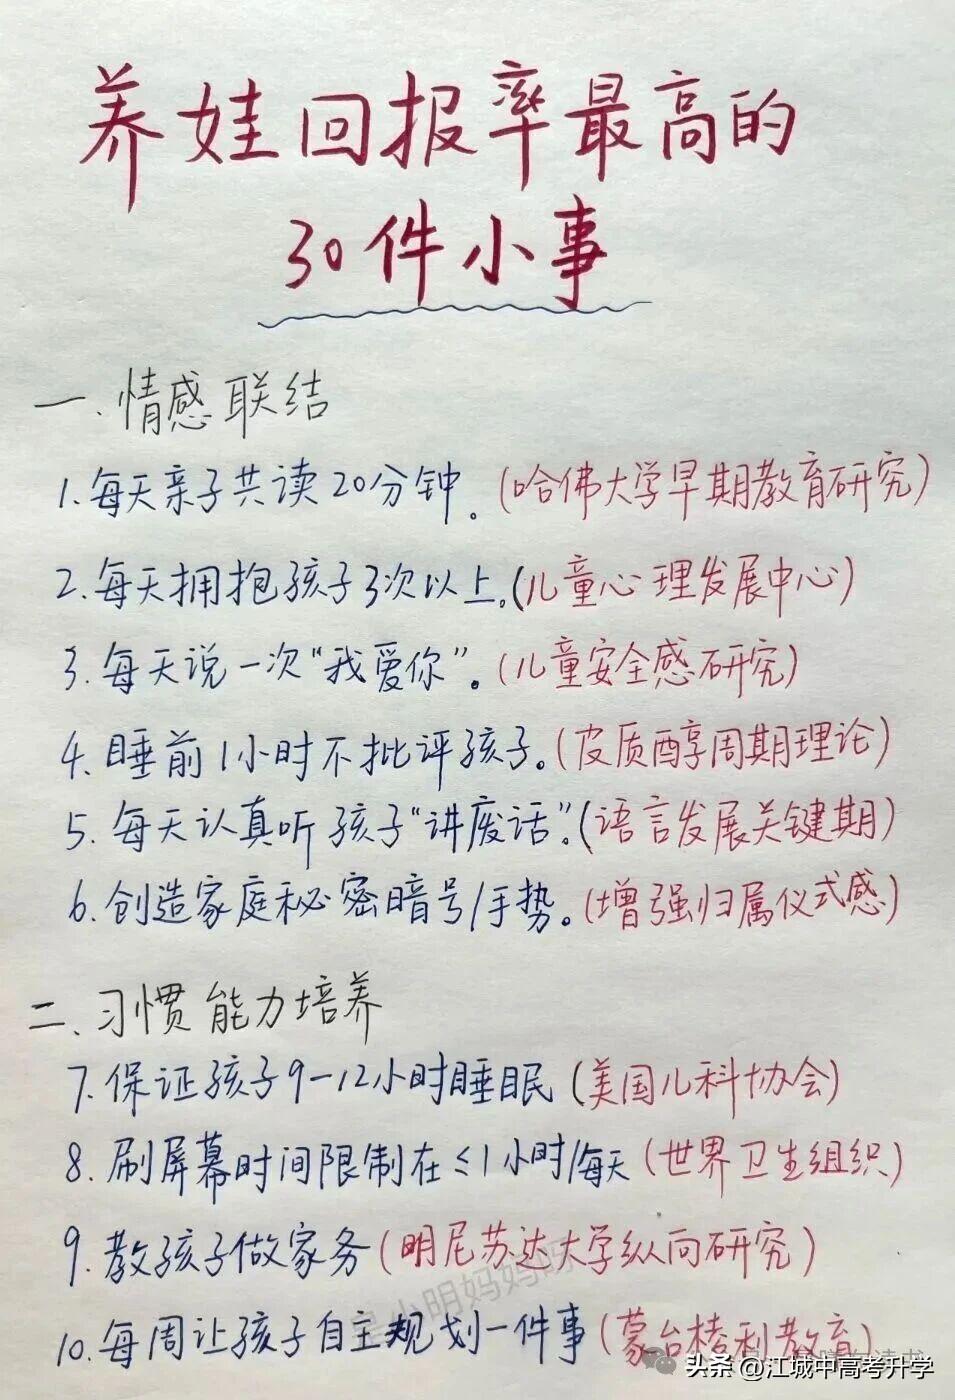 养娃回报率最高的
30件小事
一、情感联结
1.每天亲子共读20分钟。(哈佛大学早期教育研究)
2.每天拥抱孩子3次以上。(儿童心理发展中心)
3.每天说一次“我爱你”。(儿童安全感研究)
4.睡前1小时不批评孩子。(皮质醇周期理论)
5.每天认真听孩子“讲废话”。(语言发展关键期)
6.创造家庭秘密暗号/手势。(增强归属仪式感)
二、习惯能力培养
7.保证孩子9-12小时睡眠(美国儿科协会)
8.刷屏幕时间限制在≤1小时/每天(世界卫生组织)
9.教孩子做家务(明尼苏达大学纵向研究)
是小明妈妈呀
10.每周让孩子自主规划一件事(蒙台梭利教育)
头条@江城中高考升学